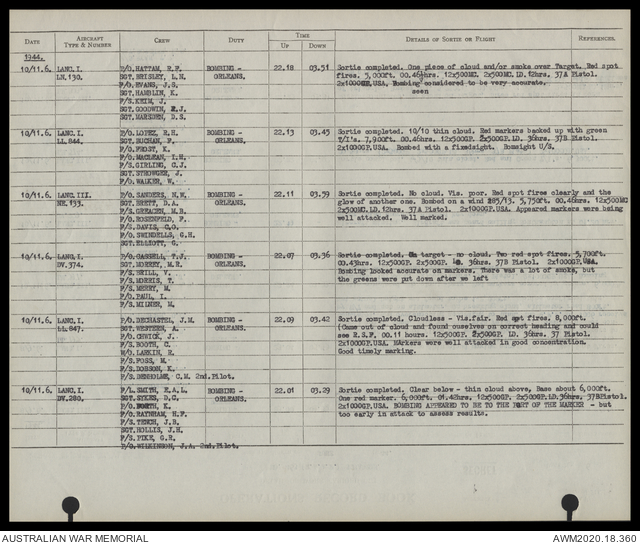 DATE AIRCRAFT TYPE & NUMBER CREW DUTY TIME UP DOWN DETAILS OF SORTIE OR FLIGHT REFERENCES.
1944.
10/11.6. LANC.I. P/O.HATTAM, R.F. BOMBING - 22.18 03.51 Sortie completed. One piece of cloud and/or smoke over Target. Red spot
LN.130. SGT.BRISLEY, L.N. ORLEANS. fires. 5,000ft. 00.46½hrs. 12x500MC. 2x500MC.LD.12hrs. 37A Pistol.
F/O.EVANS, J.G. 2x1000 USA. Bombing considered to be very accurate.
SGT.HAMBLIN, K. seen
F/S.KEIM, J.
SGT.GOODWIN, R.J.
SGT.MARSDEN, D.S.
10/11.6. LANC.I. P/O.LOPEZ, R.H. BOMBING - 22.13 03.45 Sortie completed. 10/10 thin cloud. Red markers backed up with green
LL.844. SGT.BUCHAN, F. ORLEANS. T/I's. 7,900ft. 00.46hrs. 12x500GP. 2x500GP.LD. 36hrs. 37B Pistol.
P/O.FROST, K. 2x1000GP.USA. Bombed with a fixedsight. Bomsight U/S.
F/O.MACLEAN, I.H.
F/S.GIRLING, C.J.
SGT.STROWGER, J.
F/O.WALKER, W.
10/11.6. LANC.III. P/O.SANDERS, N.W. BOMBING - 22.11 03.59 Sortie completed. No cloud. Vis. poor. Red spot fires clearly and the
NE.133. SGT.BRETT, D.A. ORLEANS. glow of another one. Bombed on a wind 285/13. 5,750ft. 00.46hrs. 12x500MC
F/S.GREACEN, M.B. 2x500MC.LD.12hrs. 37A Pistol. 2x1000GP.USA. Appeared markers were being
F/O.ROSENFELD, F. well attacked. Well marked.
F/S.DAVIS, C.O.
F/S.SWINDELLS, G.H.
SGT.ELLIOTT, G.
10/11.6. LANC.I. P/O.GASSELL, T.J. BOMBING - 22.07 03.36 Sortie completed. On target - no cloud. Two red spot fires. 5,700ft.
DV.374. SGT.MORREY, M.R. ORLEANS. 00.43hrs. 12x500GP. 2x500GP. LD. 36hrs. 37B Pistol. 2x1000GP.USA.
F/S.BRILL, V. Bombing looked accurate on markers. There was a lot of smoke, but
F/S.MORRIS, T. the greens were put down after we left
F/S.MERRY, M.
F/S.PAUL, I.
F/S.MILNER, M.
10/11.6. LANC.I. P/O.DECHASTEL, J.M. BOMBING - 22.09 03.42 Sortie completed. Cloudless - Vis.fair. Red spt fires. 8,000ft.
LL.847. SGT.WESTERN, A. ORLEANS. (Came out of cloud and found ourselves on correct heading and could
F/O.CHWICK, J. see R.S.F. 00.11 hours. 12x500GP. 2x500GP. LD. 36hrs. 37 Pistol.
F/S.BOOTH, C. 2x1000GP.USA. MArkers were well attacked in good concentration.
W/O.LARKIN, R. Good timely marking.
F/S.FOSS, M.
F/S.DOBSON, K.
F/S.DENHOLME, C.M. 2nd.Pilot.
10/11.6. LANC.I. F/L.SMITH, E.A.L. BOMBING - 22.01 03.29 Sortie completed. Clear below - thin cloud above, Base about 6,000ft.
DV.280. SGT.SYKES, D.C. ORLEANS. One red marker. 6,000ft. 01.42hrs. 12x500GP. 2x500GP.LD.36hrs. 37BPistol.
P/O. K. 2x1000GP.USA. BOMBING APPEARED TO BE TO THE PORT OF THE MARKER - but
F/O.RAYNHAM, H.F. too early in attack to assess results.
F/S.TENCH, J.B.
SGT.HOLLIS, J.H.
F/S.PIKE, G.R.
F/O.WILKINSON, J.A. 2nd.Pilot.
AUSTRALIAN WAR MEMORIAL AWM2020.18.360